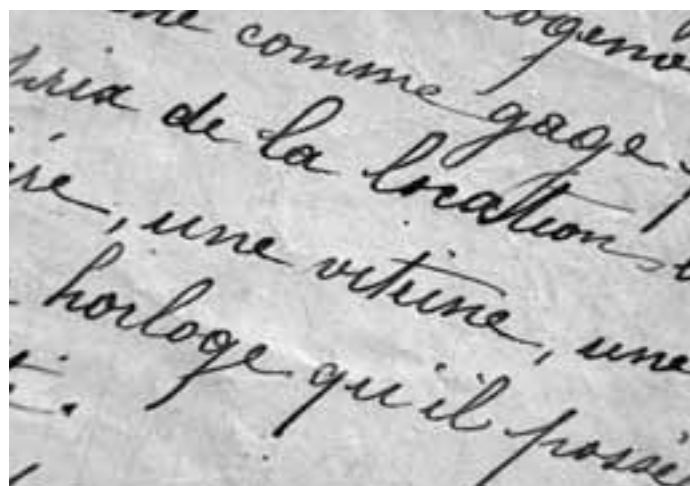 comme gage
prix de la location
, une vitrine, une
horloge qu'il possè